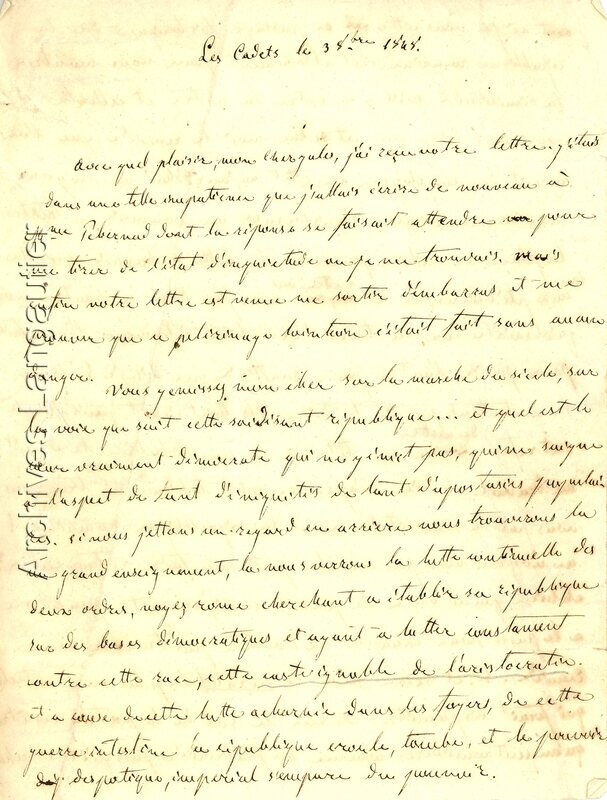 Les Cadets le 3 8bre 1848.
Avec quel plaisir, mon cher gulo, j'ai reçu votre lettre. j'étais
dans une telle impatience que j'allais écrire de nouveau à
Mme Pebernad dont la réponse se faisait attendre pour
me tirer de l'état d'inquietude ou je me trouvais. mais
enfin votre lettre est venue me sortir d'embarras et me
prouver que ce pelerinage lointain s'était fait sans aucun
danger.
Vous gemissez mon cher sur la marche du siecle, sur
la voie que suit cette soidisant république... et quel est le
cœur vraiment démocrate qui ne gémit pas, qui ne saigne
à l'aspect de tant d'iniquités de tant d'apostasies populai
res. si nous jettons un regard en arriere nous trouverons la
un grand enseignement, la nous verrons la lutte continuelle des
deux ordres, voyez rome cherchant a établir sa république
sur des bases démocratiques et ayant a lutter constament
contre cette race, cette caste ignoble de l'aristocratie.
et a cause de cette lutte acharnée dans les foyers, de cette
guerre intestine la république croule, tombe, et le pouvoir
despotique, imperial s'empare du pouvoir.
Archives Languillier